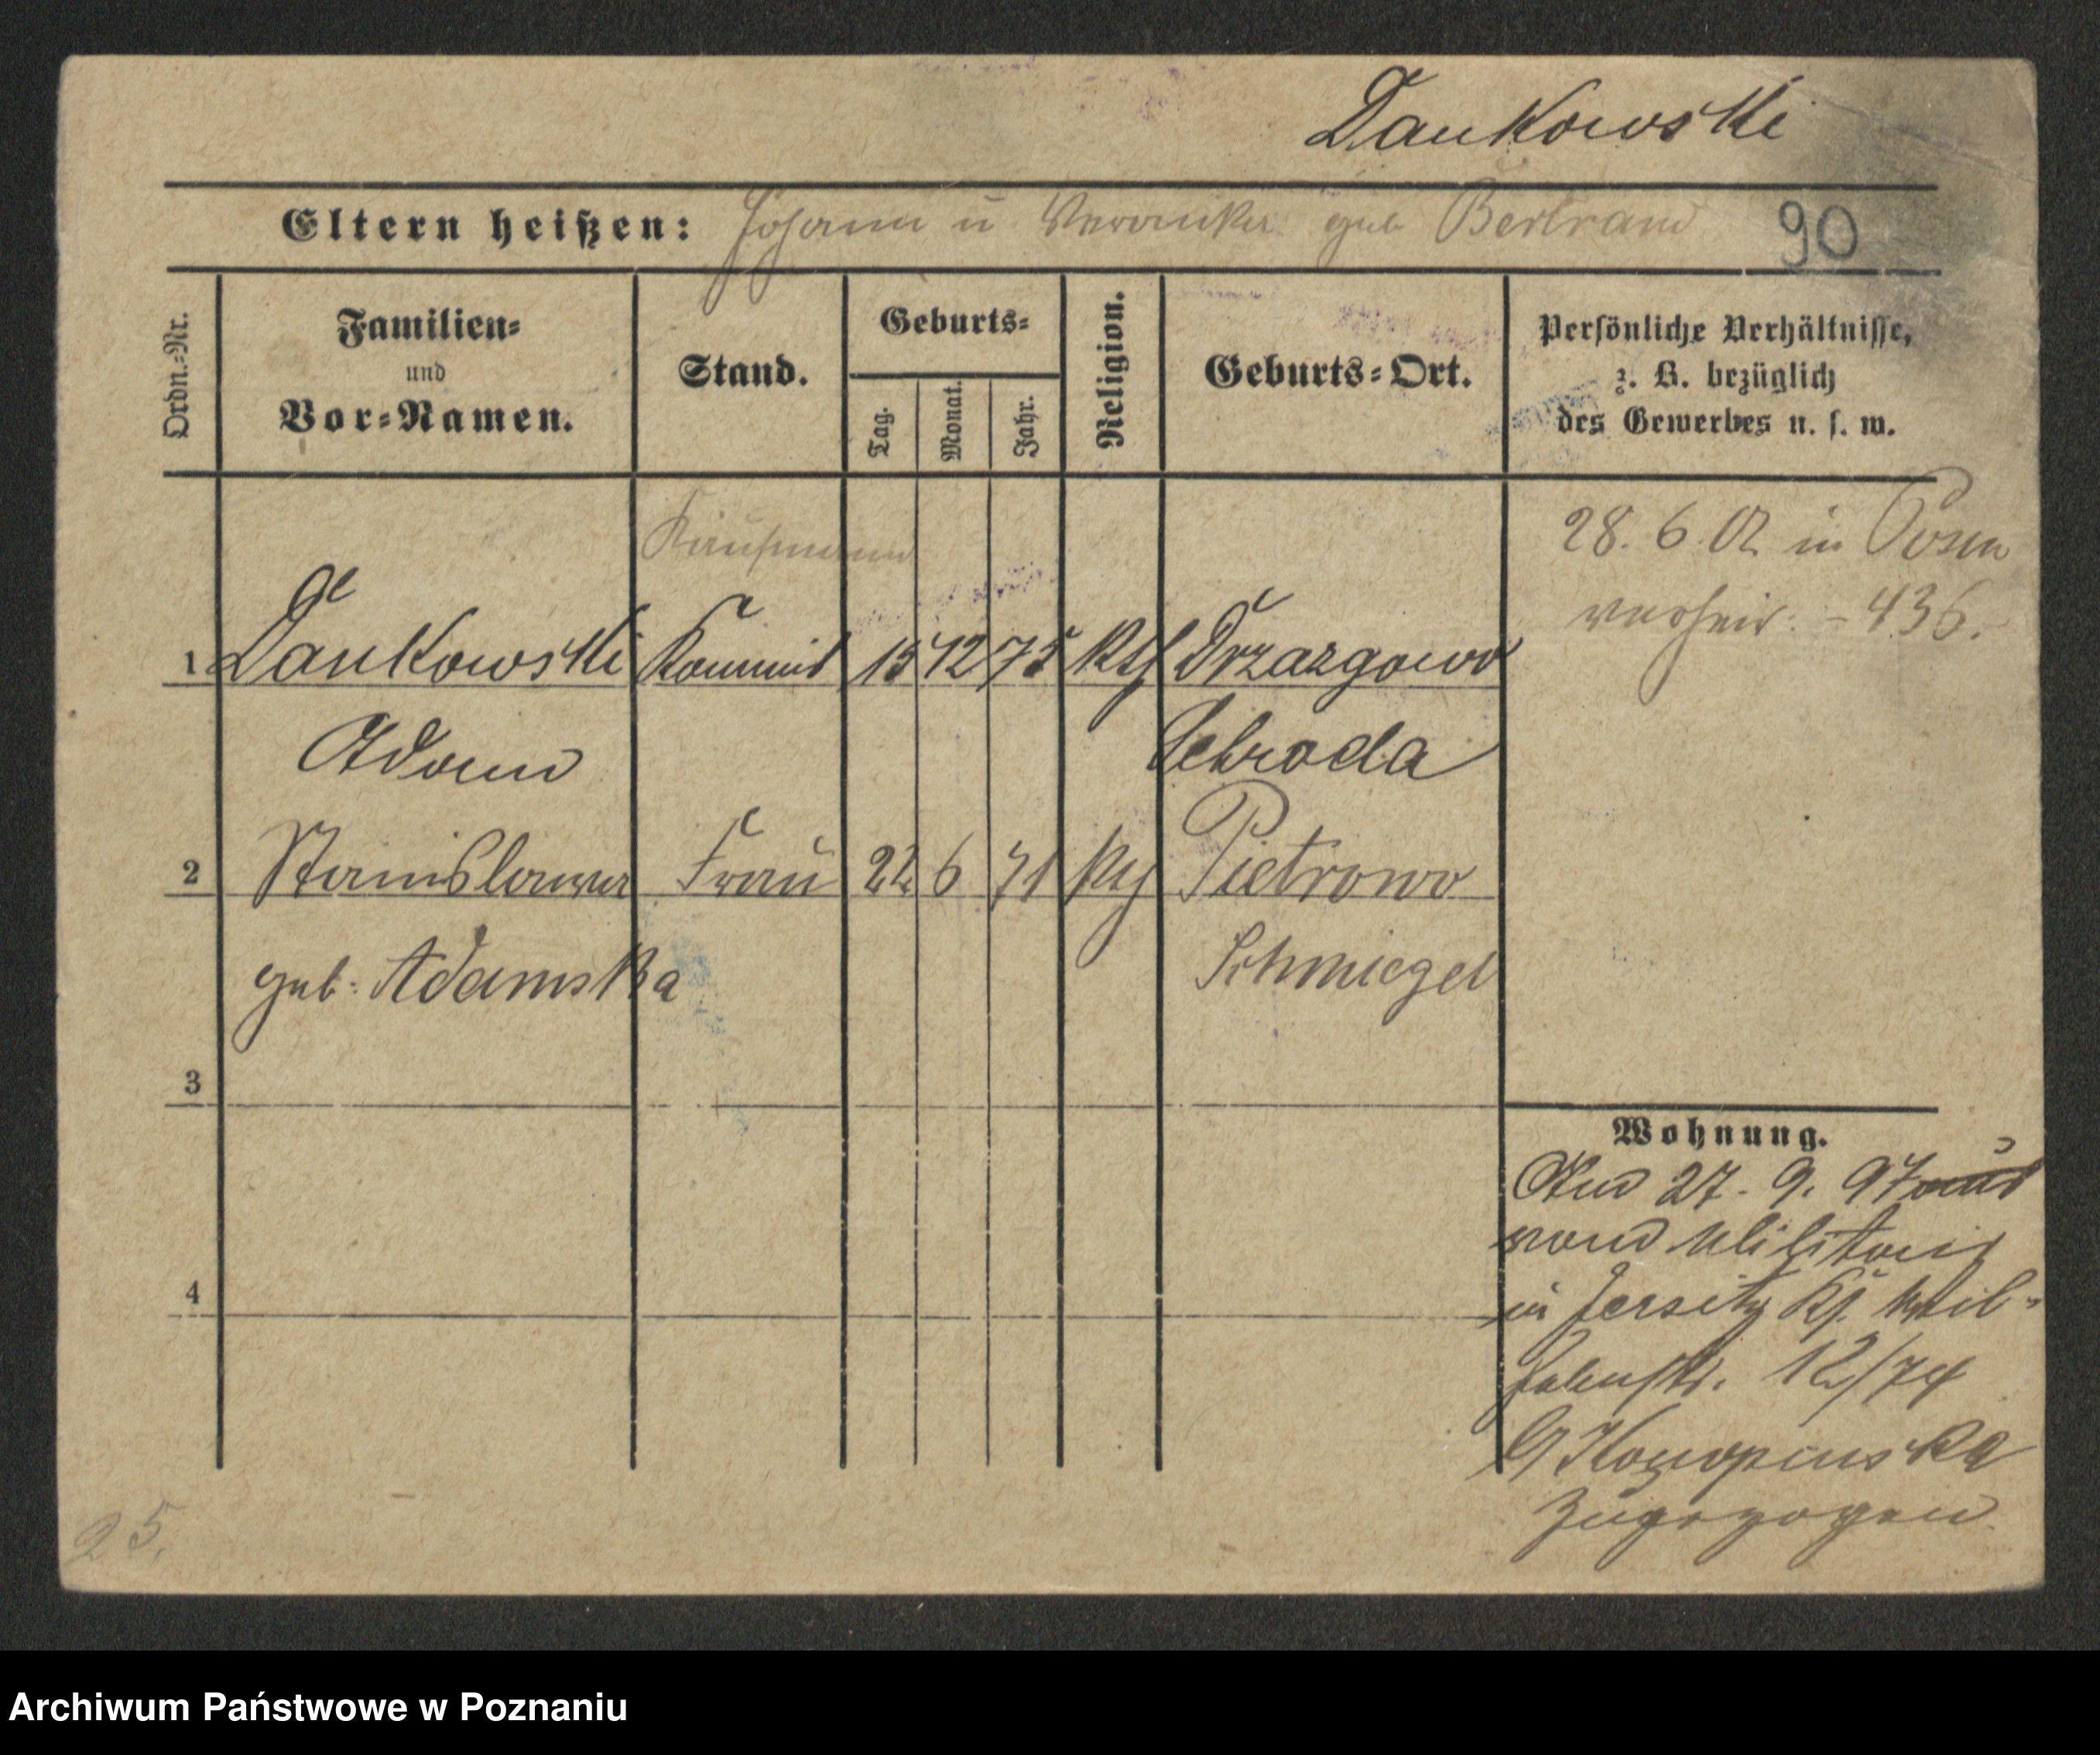 Dankowski
Eltern heißen: Johann u Veronika geb Bertrand 90
Ordn.-Nr.
Familien-
und
Vor-Namen.
Stand.
Geburts-
Tag.
Monat.
Jahr.
Religion.
Geburts-Ort.
Persönliche Verhältnisse,
z. B. bezüglich
des Gewerbes u. s. w.
Kaufmann
28. 6. 02 in Posen
verheir. - 436.
1 Dankowski Kommis 15 12 75 Kth Drzazgowo
Adam Schroda
2 Stanislawa Frau 22 6 71 Kth Pietrowo
geb. Adamska Schmiegel
3
4
Wohnung.
Am 27. 9. 97 aus
vom Militair
in Jersitz Ks. Wil-
helmstr. 12/74
b/ Konopinska
zugezogen
25.
Archiwum Państwowe w Poznaniu